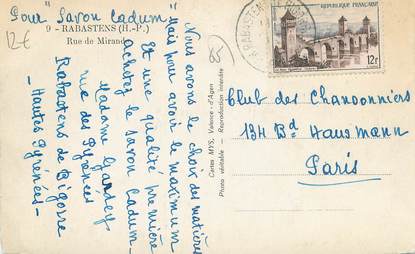 Pour Savon Cadum
12€
9 - RABASTENS (H.-P.)
Rue de Mirande
65
Nous avons le choix des matières
Mais pour avoir le maximum
Et une qualité première
achetez le savon Cadum
Madame Gardey
rue des Pyrénées
Rabastens de Bigorre
- Hautes Pyrénées -
Cartes MYS, Valence-d'Agen
Photo véritable - Reproduction interdite
RABASTENS
REPUBLIQUE FRANÇAISE
12F
Club des Chansonniers
134 Bd Hausmann
Paris